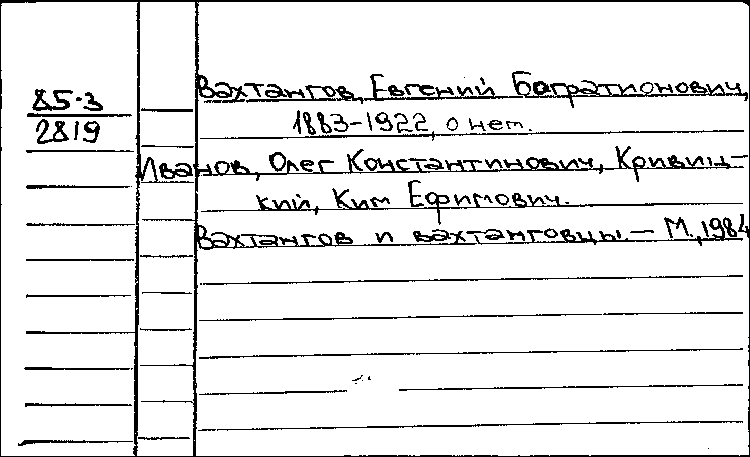 85.3
2819
Вахтангов, Евгений Багратионович,
1883-1922, о нем.
Иванов, Олег Константинович, Кривиц-
кий, Ким Ефимович.
Вахтангов и вахтанговцы. - М., 1984